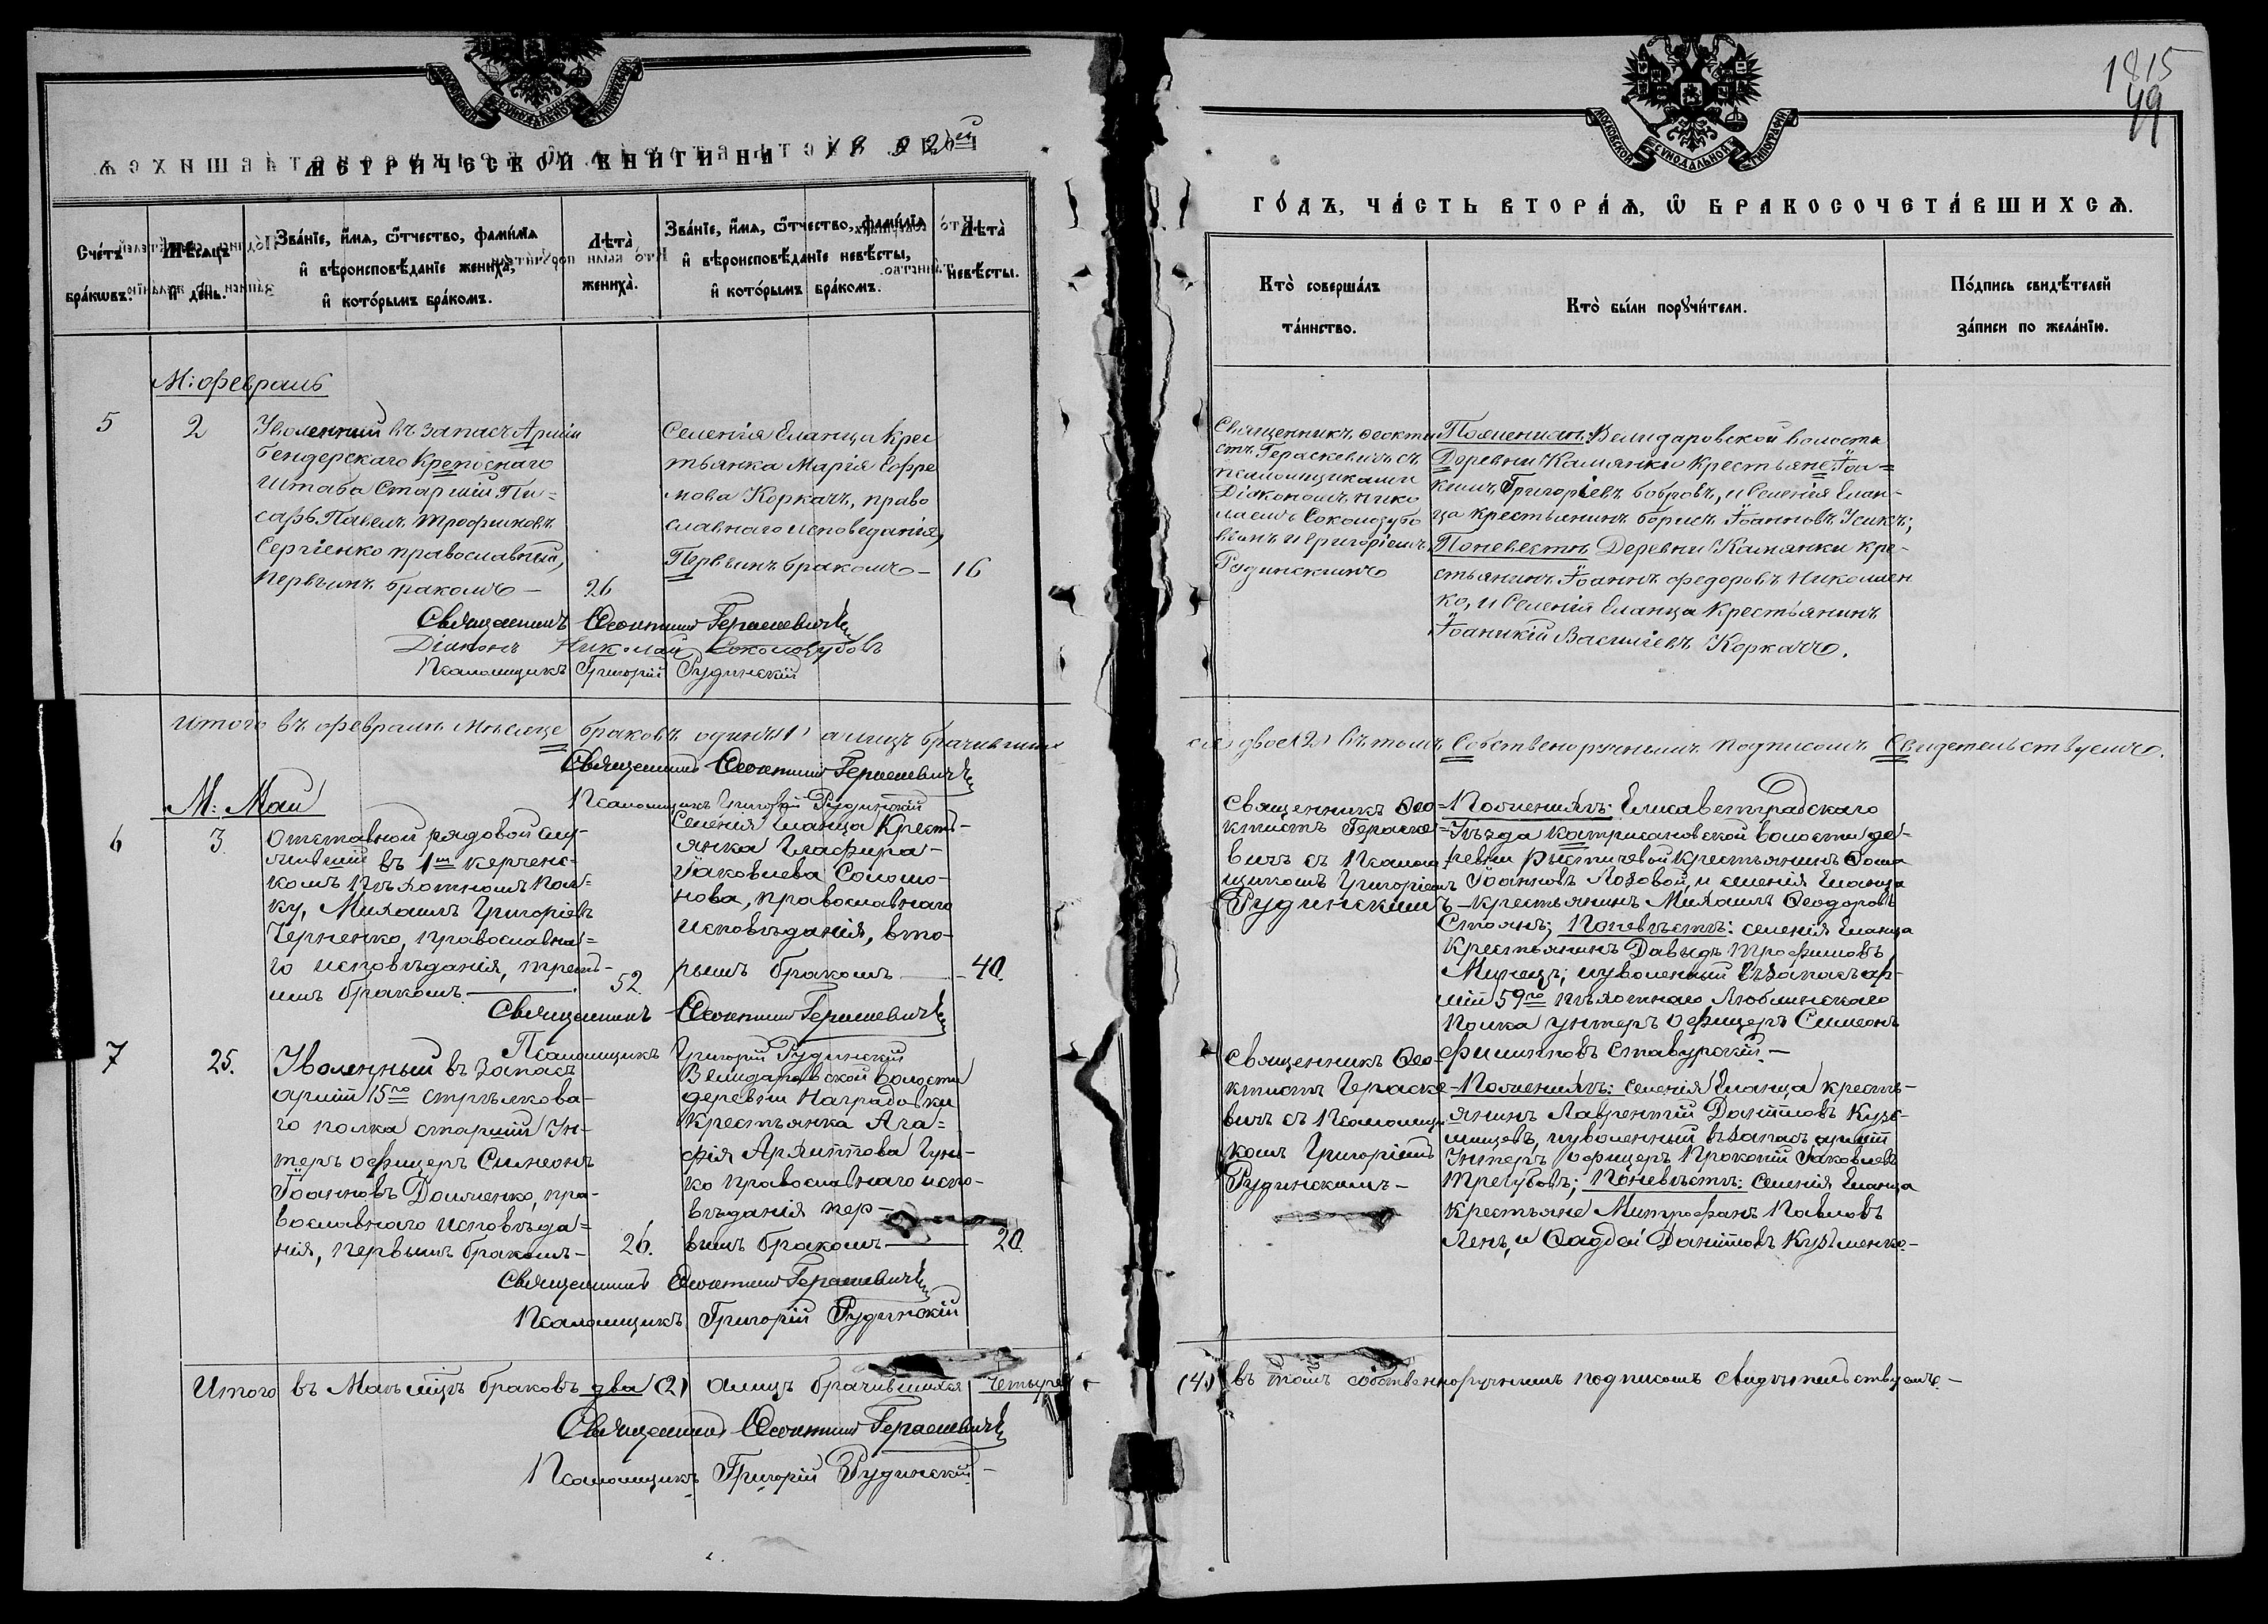 МОСКОВСКОЙ СУНОДАЛЬНОЙ ТИПОГРАФІИ
МЕТРИЧЕСКОЙ КНИГИ НА 1892ой
Сче́тъ бра́кѡвъ.
Мѣ́сяцъ и҆ де́нь.
Зва́нїе, и҆́мя, ѻ҆́тчество, фами́лїя
и҆ вѣроисповѣ́данїе жениха̀,
и҆ кото́рымъ бра́комъ.
Лѣта̀
жениха̀.
Зва́нїе, и҆́мя, ѻ҆́тчество, фами́лїя
и҆ вѣроисповѣ́данїе невѣ́сты,
и҆ кото́рымъ бра́комъ.
Лѣта̀
невѣ́сты.
М: февраль
5
2
Уволенный въ запасъ Арміи
Бендерскаго Крепоснаго
Штаба Старшій Пи=
сарь Павелъ Трофимовъ
Сергіенко православный,
первымъ бракомъ –
26
Селенія Еланца Крес
тьянка Марія Ефре
мова Коркачъ, право
славнаго исповеданія,
Первымъ бракомъ –
16
Священникъ Ѳеоктистъ Гераскевичъ
Діаконъ Николай Соколозубовъ
Псаломщикъ Григорій Рудинскій
Итого въ феврале месяце браковъ одинъ (1) а лицъ брачивших
Священникъ Ѳеоктистъ Гераскевичъ
Псаломщикъ Григорій Рудинскій
М: Май
6
3
Отставной рядовой слу-
жившій въ 1мъ Керченс-
комъ Пѣхотномъ Пол=
ку, Михаилъ Григоріевъ
Черненко, Православна=
го исповѣданія, треть-
имъ бракомъ.
52.
Селенія Еланца Кресть-
янка Гласфира
Іаковлева Соломо-
нова, православнаго
исповѣданія, вто-
рымъ бракомъ
40.
Священникъ Ѳеоктистъ Гераскевичъ
Псаломщикъ Григорій Рудинскій
7
25.
Уволенный въ Запасъ
арміи 15го стрѣлкова-
го полка старшій Ун-
теръ офицеръ Симеонъ
Іоанновъ Долженко, пра-
вославнаго исповѣда=
нія, первымъ бракомъ –
26.
Велидаровской волости
деревни Наградовки
Крестьянка Ага=
фія
ко православнаго испо-
вѣданія пер-
вымъ бракомъ
20.
Священникъ Ѳеоктистъ Гераскевичъ
Псаломщикъ Григорій Рудинскій
Итого въ Маѣ мцѣ браковъ два (2) а лицъ брачившихся четыре
Священникъ Ѳеоктистъ Гераскевичъ
Псаломщикъ Григорій Рудинскій
1815
49
МОСКОВСКОЙ СУНОДАЛЬНОЙ ТИПОГРАФІИ
ГО́ДЪ, ЧА́СТЬ ВТОРА́Я, Ѡ҆ БРАКОСОЧЕТА́ВШИХСЯ.
Кто̀ соверша́лъ
та́инство.
Кто̀ бы́ли порꙋчи́тели.
По́дпись свидѣ́телей
за́писи по жела́нїю.
Священникъ Ѳеокти
стъ Гераскевичъ съ
псаломщиками
Діакономъ Нико
лаемъ Соколозубо
вымъ и Григоріемъ
Рудинскимъ
Поженихѣ: Велидаровской волости
Деревни Камянки крестьяне Іоа=
кимъ Григоріевъ Бобровъ, и Селенія Елан-
ца крестьянинъ Борисъ Іоанновъ Усикъ;
Поневестѣ Деревни Камянки кре-
стьянинъ Іоаннъ Федоровъ Николаен
ко, и Селенія Еланца Крестьянинъ
Іоаникій Василіевъ Коркачъ.
ся двое (2) въ томъ Собственоручнымъ подписомъ Свидетельствуемъ.
Священникъ Ѳео=
ктистъ Гераске=
вичъ съ Псалом
щикомъ Григоріемъ
Рудинскимъ
Поженихѣ: Елисаветградскаго
Уѣзда волости де-
ревни крестьянинъ Ѳома
Іоанновъ Лозовой, и селенія Еланца
крестьянинъ Михаилъ Ѳеодоровъ
Стоянъ; Поневѣстѣ: селенія Еланца
Крестьянинъ Давыдъ Трофимовъ
и уволенный въ Запасъ ар-
міи 59го пѣхотнаго Люблинскаго
полка унтеръ офицеръ Симеонъ
Филипповъ Ставурскій. –
Священникъ Ѳео-
ктистъ Гераске-
вичъ съ Псаломщи
комъ Григоріемъ
Рудинскимъ –
Поженихѣ: селенія Еланца кресть-
янинъ Лаврентій Даніиловъ Кузь-
мицевъ, и уволенный въ Запасъ арміи
Унтеръ офицеръ Прокопій Іаковлевъ
Трегубовъ; Поневѣстѣ: селенія Еланца
крестьяне Митрофанъ Павловъ
Ленъ, и Ѳаддей Даніиловъ Кузьменко. –
(4) въ томъ собственноручнымъ подписомъ свидѣтельствуемъ. –